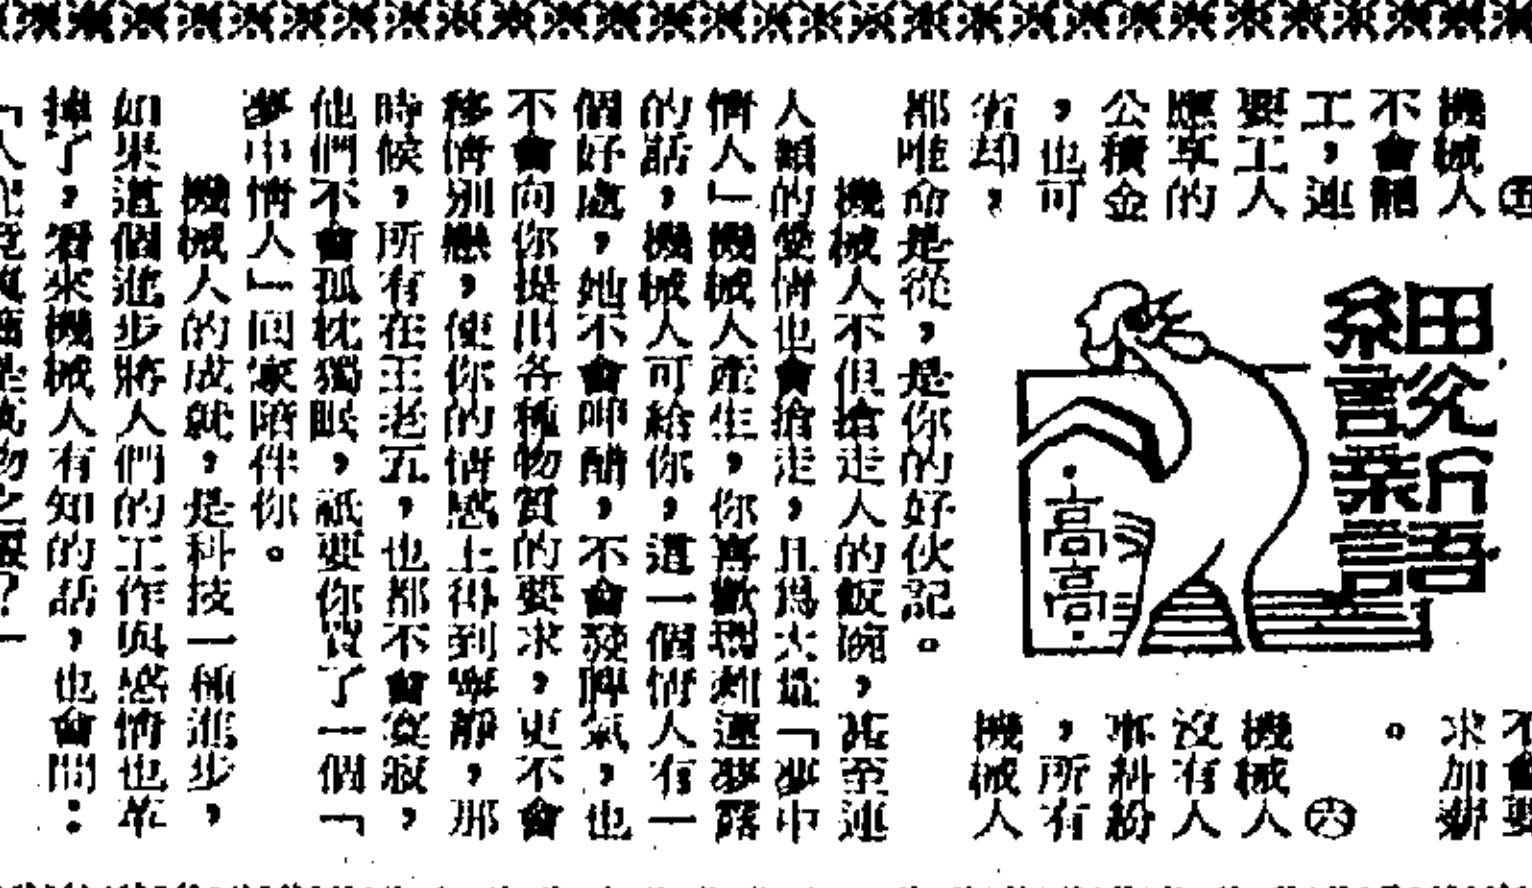 ㊄
機械人
不會鬧
工，連
要工人
應享的
公積金
，也可
省却，
細説
語
高高
不會要
求加薪
。
㊅
機械人
沒有人
事糾紛
，所有
機械人
都唯命是從，是你的好伙記。
機械人不但搶走人的飯碗，甚至連
人類的愛情也會搶走，且爲大造「夢中
情人」機械人產生，你喜歡瑪利蓮夢露
的話，機械人可給你，這一個情人有一
個好處，她不會呷醋，不會發脾氣，也
不會向你提出各種物質的要求，更不會
移情別戀，使你的情感上得到寧靜，那
時候，所有在王老五，也都不會寂寞，
他們不會孤枕獨眠，祇要你買了一個「
夢中情人」回家陪伴你。
機械人的成就，是科技一種進步，
如果這個進步將人們的工作與感情也革
掉了，看來機械人有知的話，也會問：